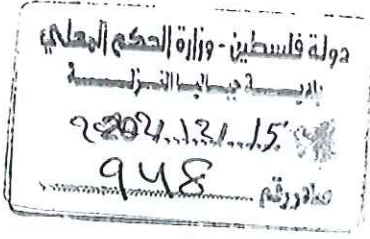 دولة فلسطين - وزارة الحكم المحلي
بلديـــة جباليا النـزلـــة
2021/12/15
صادر رقم 948